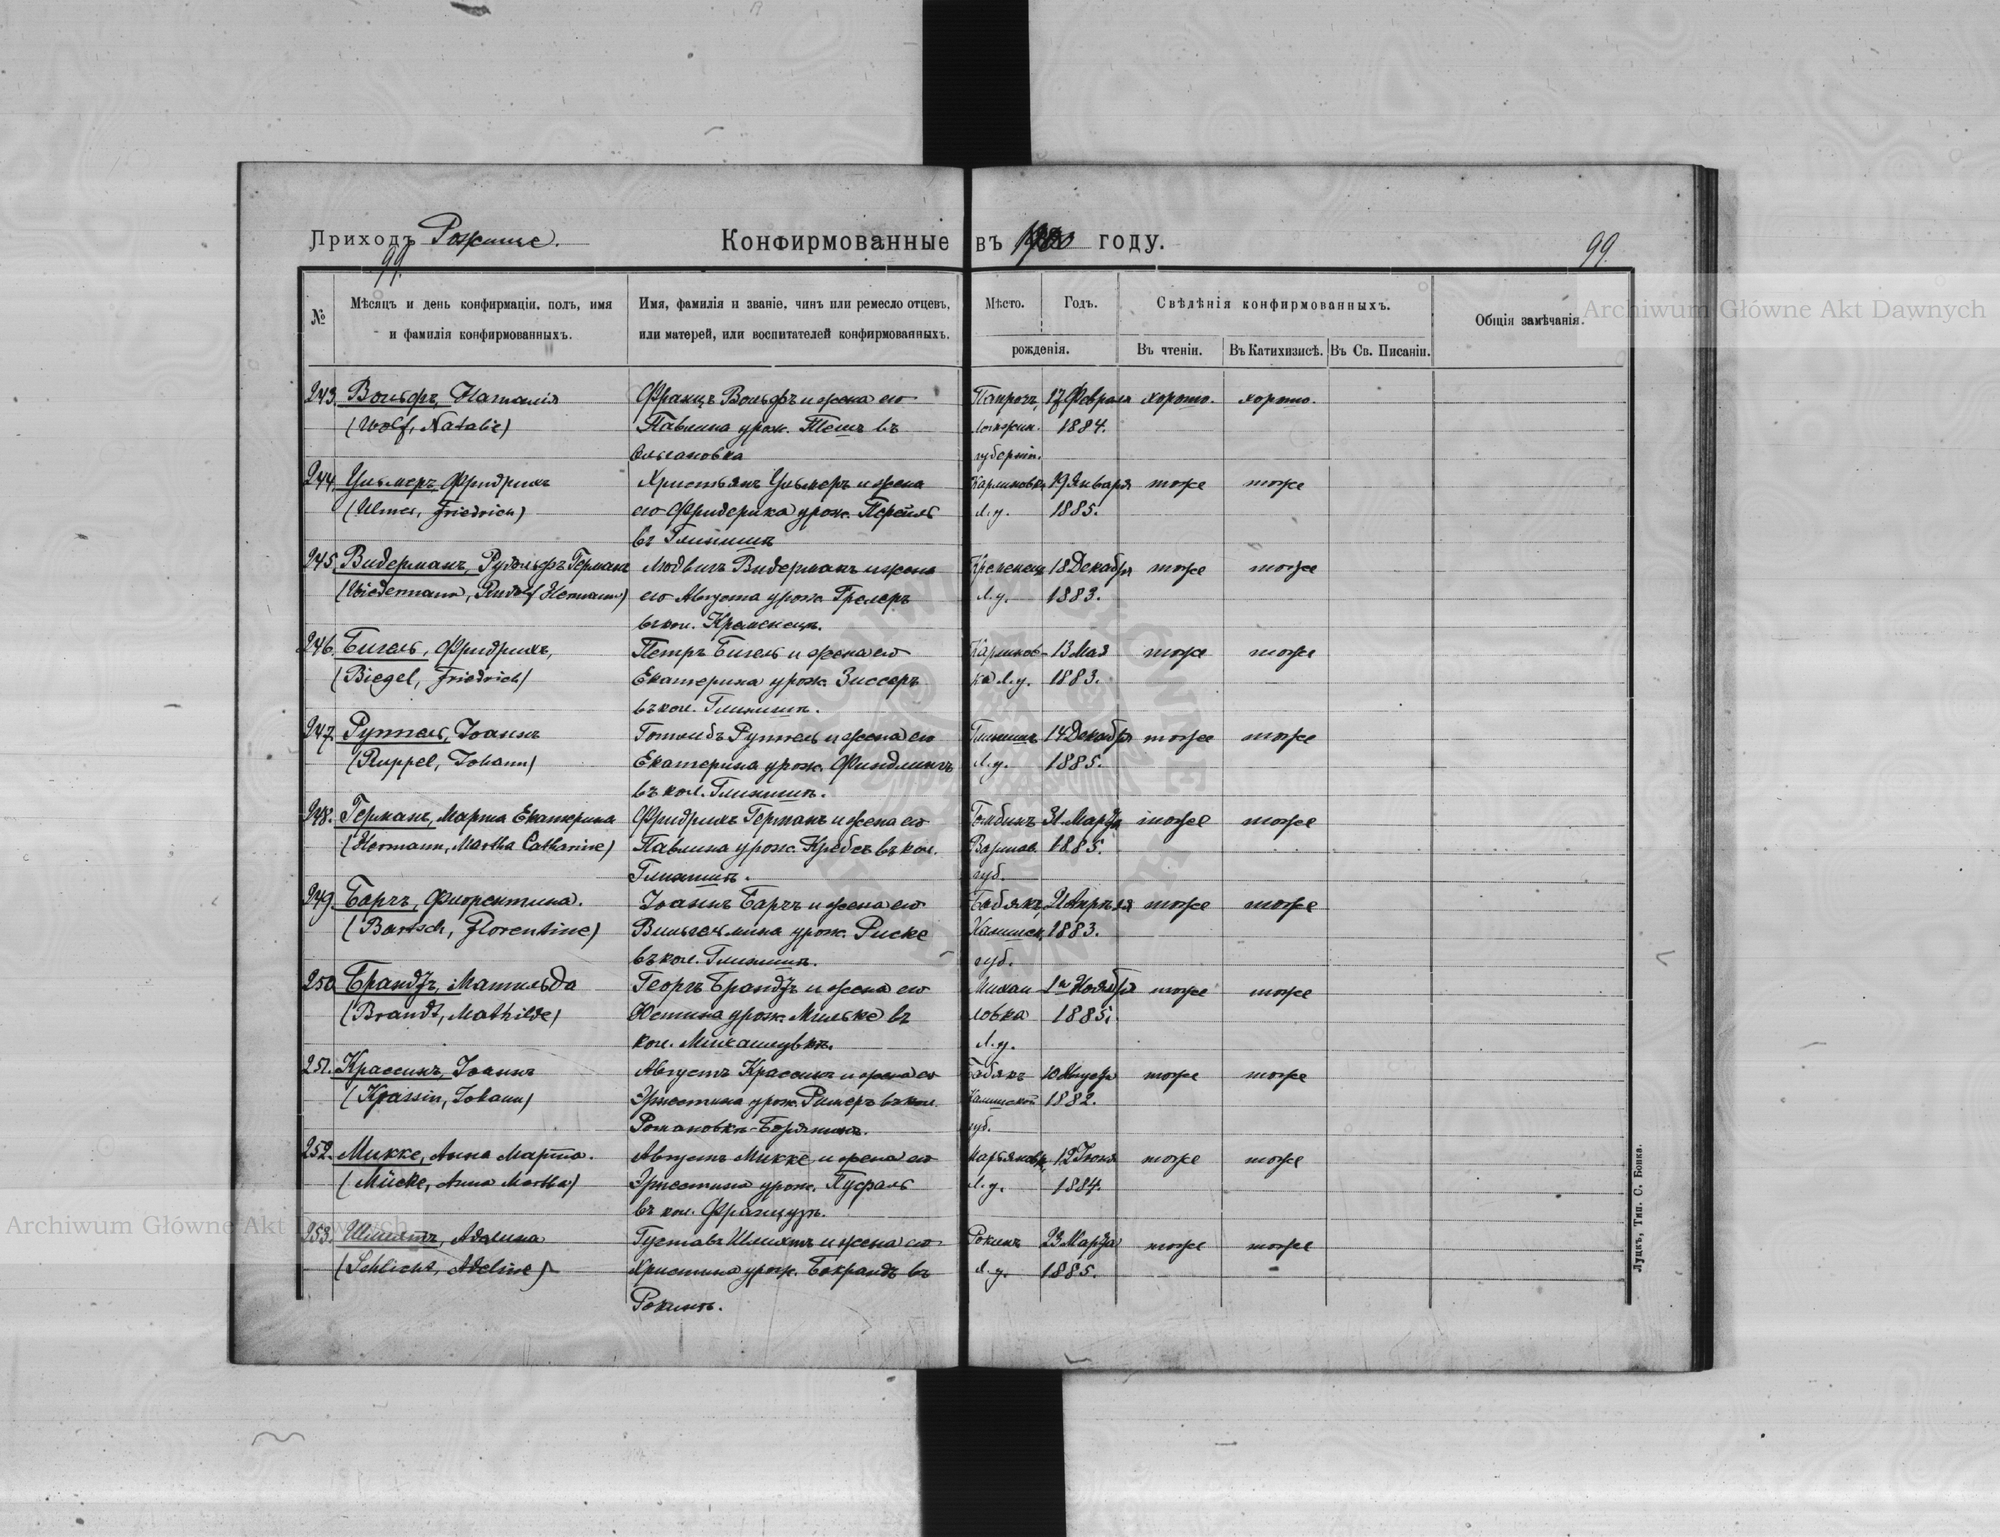 Приходъ Рожище. Конфирмованные въ 1900 году.
99. 99.
№ Мѣсяцъ и день конфирмаціи, полъ, имя и фамилія конфирмованныхъ. Имя, фамилія и званіе, чинъ или ремесло отцевъ, или матерей, или воспитателей конфирмованныхъ. Мѣсто. Годъ. рожденія. Свѣдѣнія конфирмованныхъ. Въ чтеніи. Въ Катихизисѣ. Въ Св. Писаніи. Общія замѣчанія.
Archiwum Główne Akt Dawnych
243. Вольфъ, Наталія Францъ Вольфъ и жена его 17 Февраля хорошо. хорошо.
(Wolf, Natalie) Павлина урож. Тешъ въ 1884.
губерніи.
244. Ульмеръ, Фридрихъ Христьянъ Ульмеръ и жена Карлиновка 19 Января тоже тоже
(Ulmer, Friedrich) его Фридерика урож. Л.у. 1885.
въ Глинищи
245. Видерманъ, Рудольфъ Германъ Людвигъ Видерманъ и жена Кременецъ 18 Декабря тоже тоже
(Wiedermann, Rudolf Hermann) его Августа урож. Грелеръ Л.у. 1883.
въ кол. Кременецъ.
246. Бигель, Фридрихъ, Петръ Бигель и жена его Карлинов- 13 Мая тоже тоже
(Biegel, Friedrich) Екатерина урож. Зиссеръ ка Л.у. 1883.
въ кол. Глинищи.
247. Руппель, Іоаннъ Готлибъ Руппель и жена его Глинищи 14 Декабря тоже тоже
(Ruppel, Johann) Екатерина урож. Финдлингъ Л.у. 1885.
въ кол. Глинищи.
248. Германъ, Марта Екатерина Фридрихъ Германъ и жена его Гомбинъ 31 Марта тоже тоже
(Hermann, Martha Catharine) Павлина урож. Кребсъ въ кол. Варшав. 1885.
Глинищи. губ.
249. Барчъ, Флорентина. Іоаннъ Барчъ и жена его Бабякъ, 21 Апрѣля тоже тоже
(Bartsch, Florentine) Вильгельмина урож. Риске Калишск. 1883.
въ кол. Глинищи. губ.
250. Брандтъ, Матильда Георгъ Брандтъ и жена его Михаи 1го Ноября тоже тоже
(Brandt, Mathilde) Юстина урож. Мильке въ ловка 1885.
кол. Л.у.
251. Крассинъ, Іоаннъ Августъ Крассинъ и жена его Бабякъ 10 Августа тоже тоже
(Krassin, Johann) Эрнестина урож. въ кол. Калишской 1882.
Романовкѣ-Борятинъ. губ.
252. Микке, Анна Марта. Августъ Микке и жена его Марьяновк. 12 Іюня тоже тоже
(Mücke, Anna Martha) Эрнестина урож. Пуфаль Л.у. 1884.
въ кол. Французъ.
Archiwum Główne Akt Dawnych
253. Шлихтъ, Аделина Густавъ Шлихтъ и жена его Рокини 23 Марта тоже тоже
(Schlicht, Adeline) Христина урож. Бокрандъ въ Л.у. 1885.
Рокини.
Луцкъ, Тип. С. Бонка.